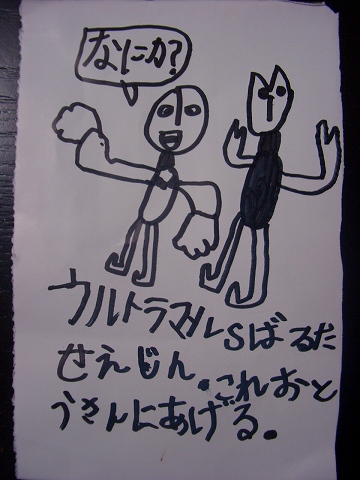 なにか?
ウルトラマルSばるた
せえじん.これおと
うさんにあげる.